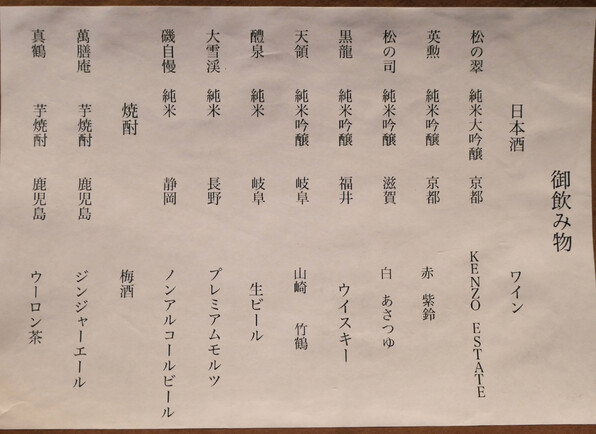 御飲み物
日本酒
松の翠 純米大吟醸 京都
英勲 純米吟醸 京都
松の司 純米吟醸 滋賀
黒龍 純米吟醸 福井
天領 純米吟醸 岐阜
醴泉 純米 岐阜
大雪渓 純米 長野
磯自慢 純米 静岡
焼酎
萬膳庵 芋焼酎 鹿児島
真鶴 芋焼酎 鹿児島
ワイン
KENZO ESTATE
赤 紫鈴
白 あさつゆ
ウイスキー
山崎 竹鶴
生ビール
プレミアムモルツ
ノンアルコールビール
梅酒
ジンジャーエール
ウーロン茶